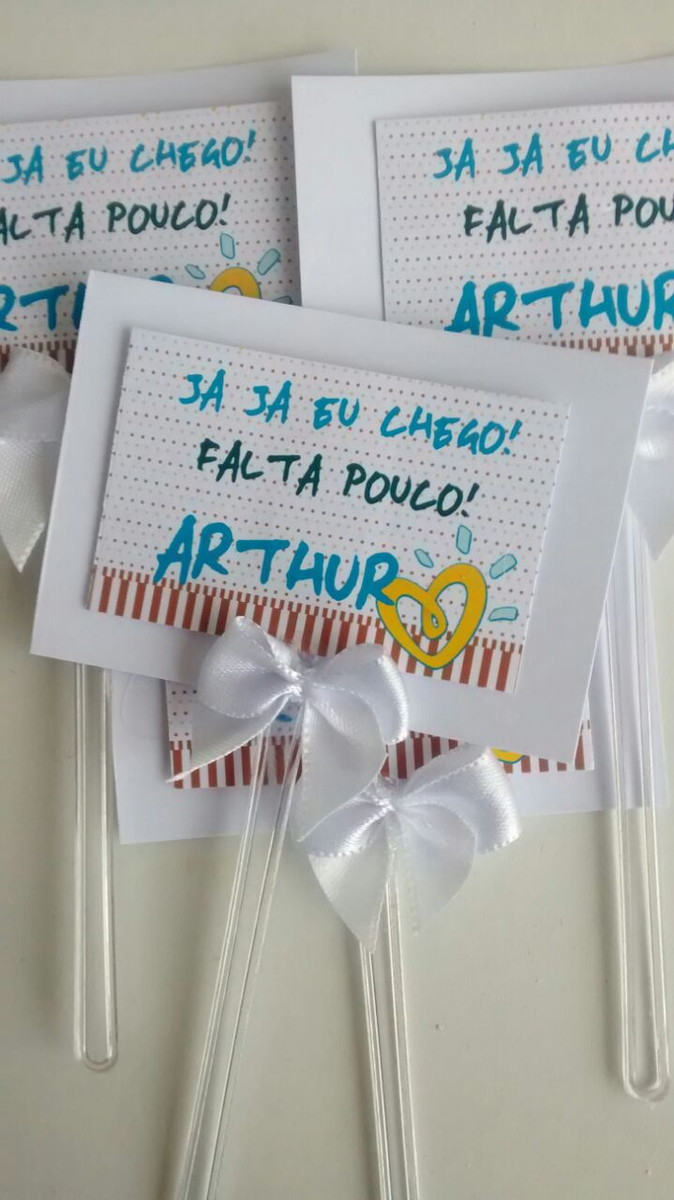 JA EU CHEGO!
FALTA POUCO!
JA JA EU
FALTA
ARTHUR
JA JA EU CHEGO!
FALTA POUCO!
ARTHUR